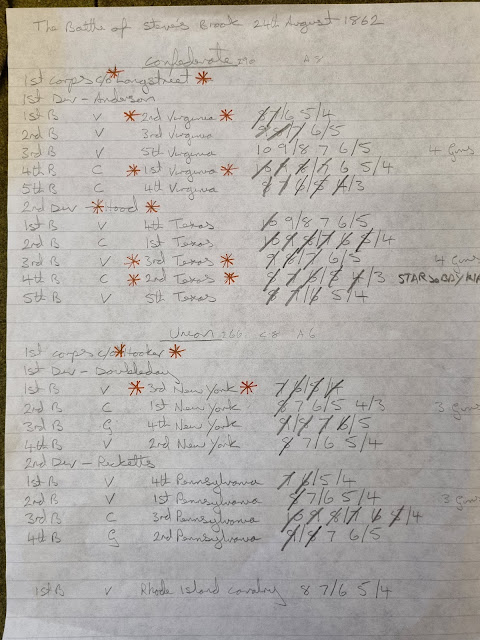 The Battle of Steve's Brook 24th August 1862
Confederate 290 A5
1st Corps c/o * Longstreet *
1st Div - Anderson
1st B V * 2nd Virginia * 8 7/6 5/4
2nd B V 3rd Virginia 7 6/5
3rd B V 5th Virginia 10 9/8 7 6/5 4 Guns
4th B C * 1st Virginia * 10 9/8 7 6 5/4
5th B C 4th Virginia 8 7 6/5 4/3
2nd Div - * Hood *
1st B V 4th Texas 10 9/8 7 6/5
2nd B C 1st Texas 10 9 8/7 6 5/4
3rd B V * 3rd Texas * 9 8/7 6/5 4 Guns
4th B C * 2nd Texas * 8 7 6/5 4/3
5th B V 5th Texas 8 7/6 5/4
Union 266 A6
1st Corps c/o * Hooker *
1st Div - Doubleday
1st B V * 3rd New York * 7 6/5 4
2nd B C 1st New York 8 7 6/5 4/3 3 Guns
3rd B G 4th New York 9 8 7 6/5
4th B V 2nd New York 8 7/6 5/4
2nd Div - Ricketts
1st B V 4th Pennsylvania 7 6/5/4
2nd B V 1st Pennsylvania 8 7/6 5/4 3 Guns
3rd B C 3rd Pennsylvania 10 9 8/7 6 5/4
4th B G 2nd Pennsylvania 9/8 7 6/5
1st B V Rhode Island Cavalry 8 7/6 5/4